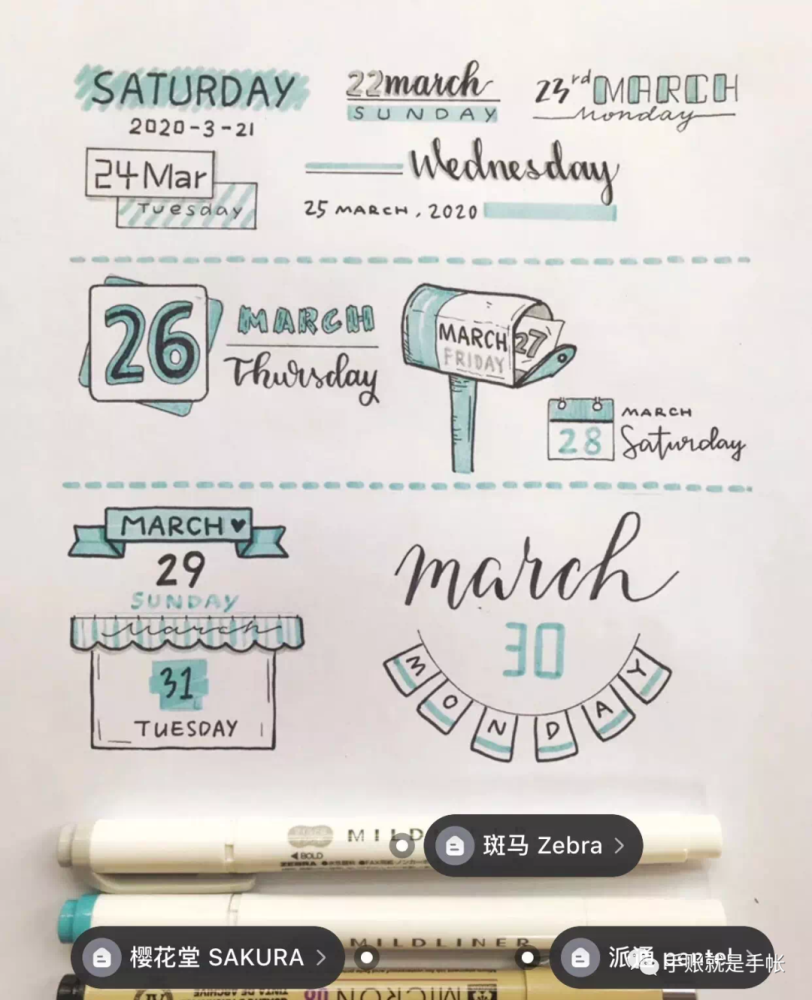 SATURDAY
2020-3-21
22 march
SUNDAY
23rd MARCH
Monday
24 Mar
Tuesday
Wednesday
25 MARCH, 2020
26
MARCH
Thursday
MARCH
FRIDAY
27
MARCH
28
Saturday
MARCH♥
29
SUNDAY
march
31
TUESDAY
march
30
MONDAY
MILD
斑马 Zebra >
◀BOLD
ZEBRA
MILDLINER
樱花堂 SAKURA >
派通 pentel >
手账就是手帐
MICRON 08